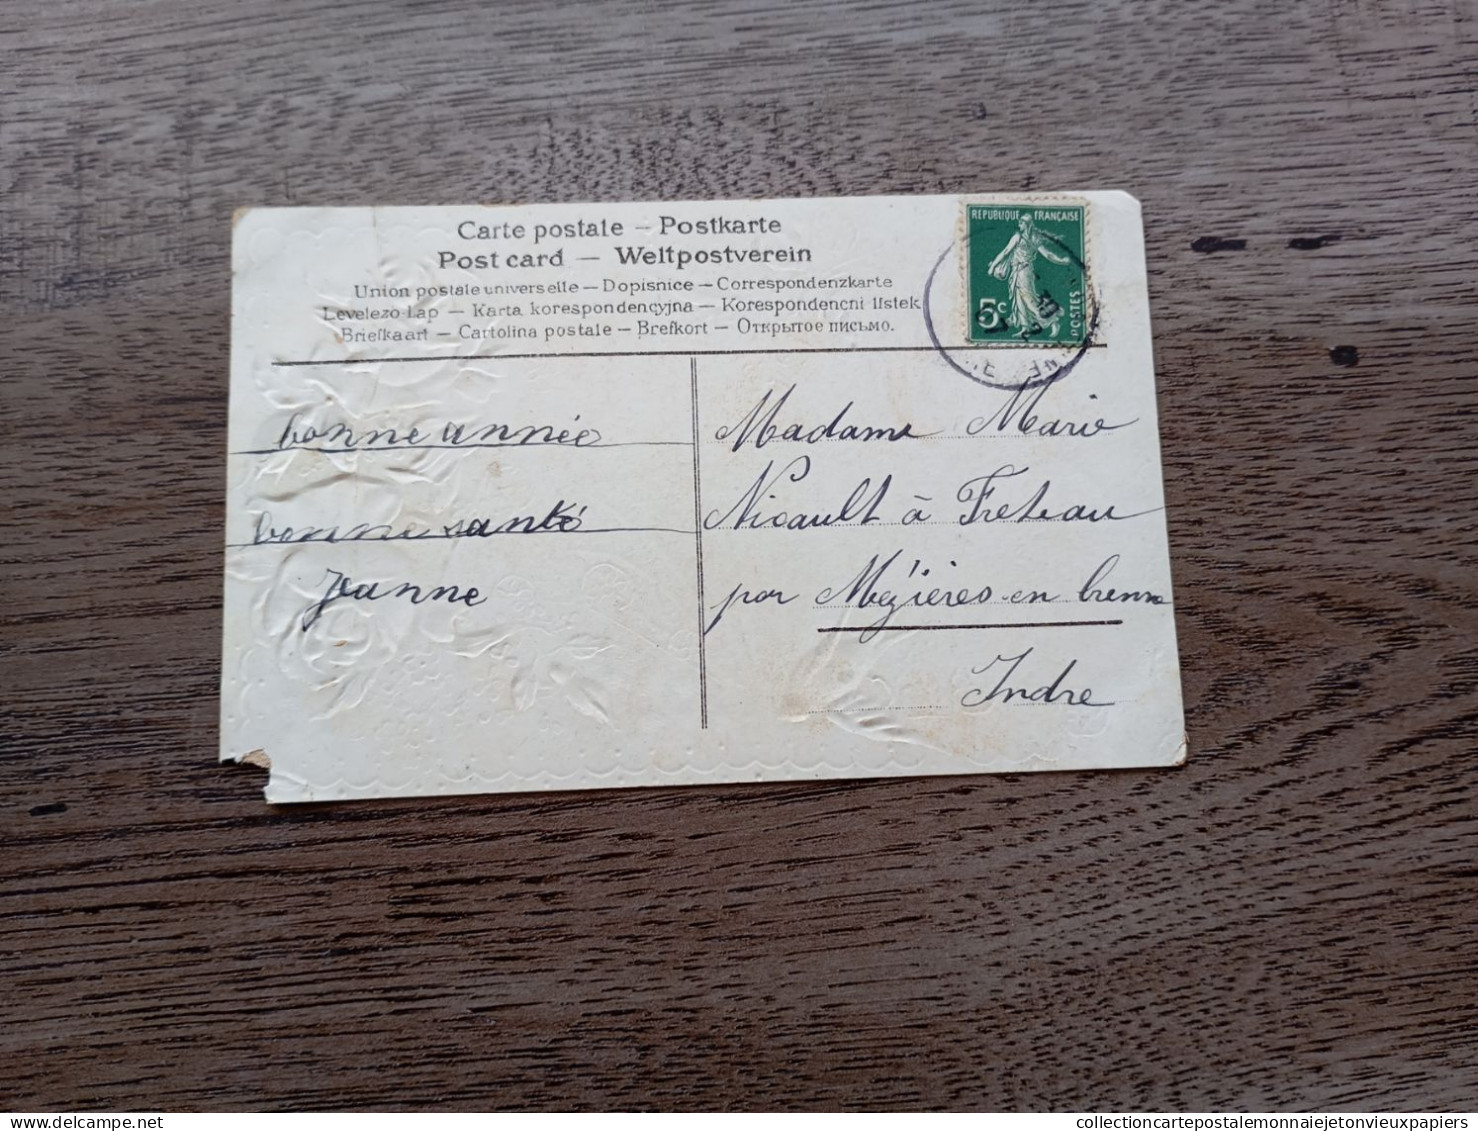 Carte postale – Postkarte
Post card – Weltpostverein
Union postale universelle – Dopisnice – Correspondenzkarte
Levelezo-Lap – Karta korespondencyjna – Korespondencni listek
Briefkaart – Cartolina postale – Brefkort – Открытое письмо.
REPUBLIQUE FRANÇAISE
5c
POSTES
bonne année
bonne santé
Jeanne
Madame Marie
Nicault à Freteau
par Mézières-en brenne
Indre
delcampe.net
collectioncartepostalemonnaiejetonvieuxpapiers